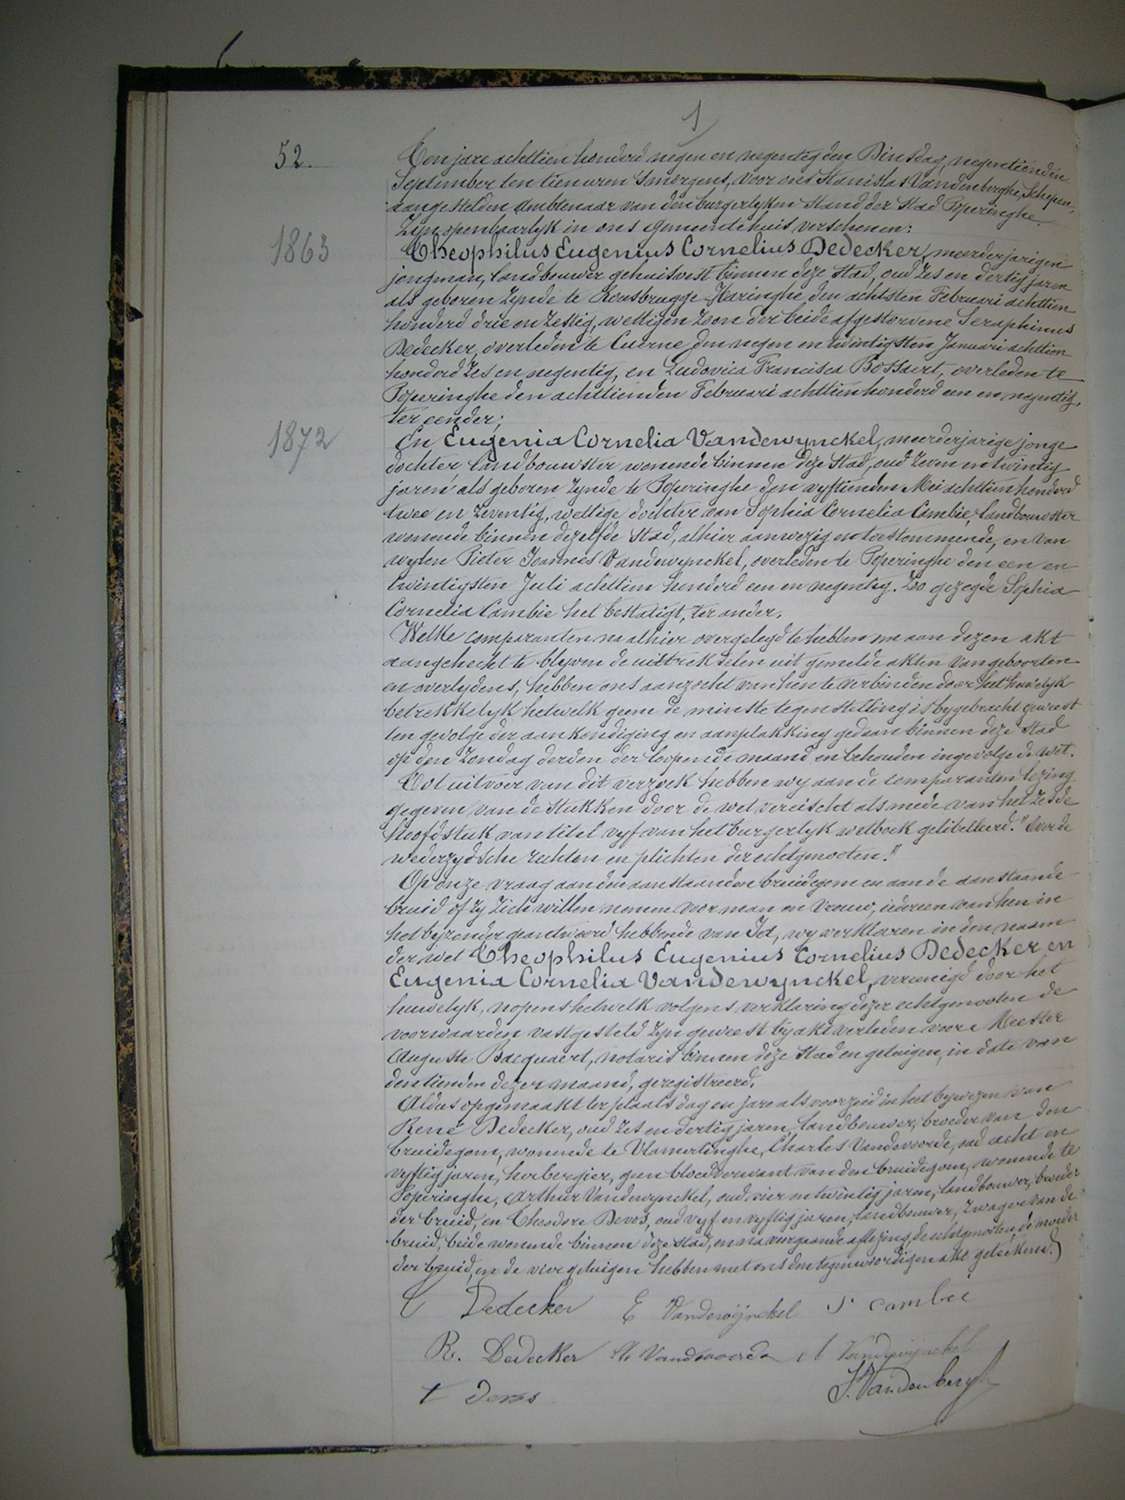 1
52.
Ten jare achttien honderd negen en negentig den Dinsdag, negentienden
September ten tien uren 's morgens, voor ons Stanislas Vandenberghe, Schepen,
aangestelden Ambtenaar van den burgerlyken Stand der Stad Poperinghe
Zyn openbaarlyk in ons Gemeentehuis verschenen:
1863
Theophilus Eugenius Cornelius Dedecker, meerderjarigen
jongman, landbouwer gehuisvest binnen deze stad, oud zes en dertig jaren
als geboren zynde te Rousbrugge-Haringhe, den achtsten Februari achttien
honderd drie en zestig, wettigen zoon der beide afgestorvene Seraphinus
Dedecker, overleden te Cuerne, den negen en twintigsten Januari achttien
honderd zes en negentig, en Ludovica Francisca Bossaert, overleden te
Poperinghe den achttienden Februari achttienhonderd een en negentig,
ter eender;
1872
En Eugenia Cornelia Vandewynckel, meerderjarige jonge
dochter landbouwster wonende binnen deze Stad, oud zeven en twintig
jaren als geboren zynde te Poperinghe den vyftienden Mei achttien honderd
twee en zeventig, wettige dochter van Sophia Cornelia Cambie, landbouwster
wonende binnen dezelfde Stad, alhier aanwezig en toestemmende, en van
wylen Pieter Joannes Vandewynckel, overleden te Poperinghe den een en
twintigsten Juli achttien honderd een en negentig. Zoo gezegde Sophia
Cornelia Cambie het bestatigt, ter ander.
Welke comparanten na alhier overgelegd te hebben om aan dezen akt
aangehecht te blyven de uittrekselen uit gemelde akten van geboorten
en overlydens, hebben ons aanzocht van hen te verbinden door het huwelyk
betrekkelyk hetwelk geene de minste tegenstelling is bygebracht geweest
ten gevolge der aankondiging en aanplakking gedaan binnen deze Stad
op den Zondag derden der loopende maand en behouden ingevolge de wet.
Tot uitvoer van dit verzoek hebben wy aan de comparanten lezing
gegeven van de stukken door de wet vereischt als mede van het zesde
hoofdstuk van titel vyf van het burgerlyk wetboek getitelleerd: "Over de
wederzydsche rechten en plichten der echtgenooten."
Op onze vraag aan den aanstaanden bruidegom en aan de aanstaande
bruid of zy zich willen nemen voor man en vrouw, iedereen van hen in
het byzonder geantwoord hebbende van Ja, wy verklaren in den naam
der wet Theophilus Eugenius Cornelius Dedecker en
Eugenia Cornelia Vandewynckel, vereenigd door het
huwelyk, nopens hetwelk volgens verklaring dezer echtgenooten de
voorwaarden vastgesteld zyn geweest by akt verleden voor Meester
Auguste Bacquaert, notaris binnen deze stad en getuigen, in date van
den tienden dezer maand, geregistreerd.
Aldus opgemaakt ter plaats dag en jare als voorzeid in het bywezen van
René Dedecker, oud zes en dertig jaren, landbouwer, broeder van den
bruidegom, wonende te Vlamertinghe, Charles Vandevoorde, oud acht en
vyftig jaren, herbergier, geen bloedverwant van den bruidegom, wonende te
Poperinghe, Arthur Vandewynckel, oud vier en twintig jaren, landbouwer, broeder
der bruid, en Theodore Devos, oud vyf en vyftig jaren, landbouwer, zwager van de
bruid, beide wonende binnen deze stad, en na voorgaande aflezing, de echtgenooten, de moeder
der bruid, en de vier getuigen hebben met ons den tegenwoordigen akt geteekend.
Dedecker E Vandewijnckel S Cambie
R. Dedecker Vandevoorde Vandewijnckel
T Devos S. Vandenbergh